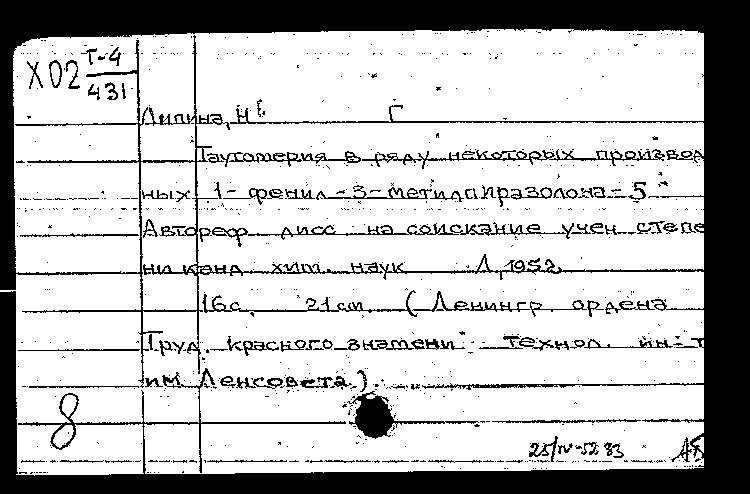 Х02 Т-4
431
Липина, Н Г
Таутомерия в ряду некоторых производ
ных 1-фенил-3-метилпиразолона-5
Автореф дисс на соискание учен степе
ни канд хим. наук Л, 1952
16с. 21см. (Ленингр. ордена
Труд. красного знамени технол. ин-т
им Ленсовета).
8
25/IV-52 83